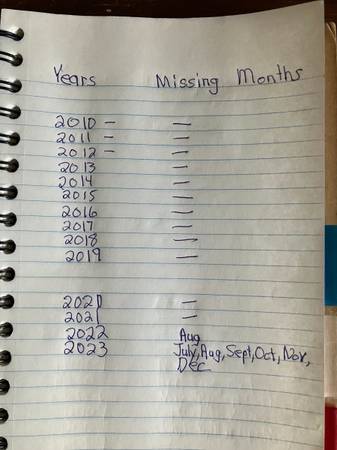 Years Missing Months
2010 — —
2011 — —
2012 — —
2013 —
2014 —
2015 —
2016 —
2017 —
2018 —
2019 —
2020 —
2021 —
2022 Aug
2023 July, Aug, Sept, Oct, Nov,
Dec